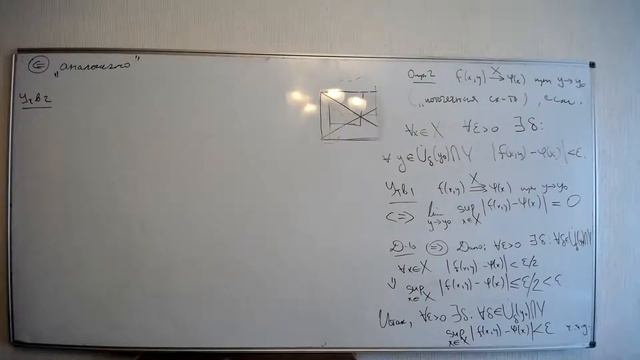 ⇐ „аналогично"
Утв 2
Опр. 2 f(x,y) →^X φ(x) при y→y₀
(„поточечная сх-ть), если
∀x∈X ∀ε>0 ∃δ:
∀ y∈U̇_δ(y₀)∩Y |f(x,y)-φ(x)|<ε.
Утв 1 f(x,y) ⇉^X φ(x) при y→y₀
<=> lim_{y→y₀} sup_{x∈X} |f(x,y)-φ(x)| = 0
Д-во ⇒ Дано: ∀ε>0 ∃δ: ∀y∈U̇_δ(y₀)∩Y
∀x∈X |f(x,y)-φ(x)|<ε/2
⇓ sup_{x∈X} |f(x,y)-φ(x)|≤ε/2<ε
Итак, ∀ε>0 ∃δ: ∀y∈U̇_δ(y₀)∩Y
sup_{x∈X} |f(x,y)-φ(x)|<ε ч.т.д.